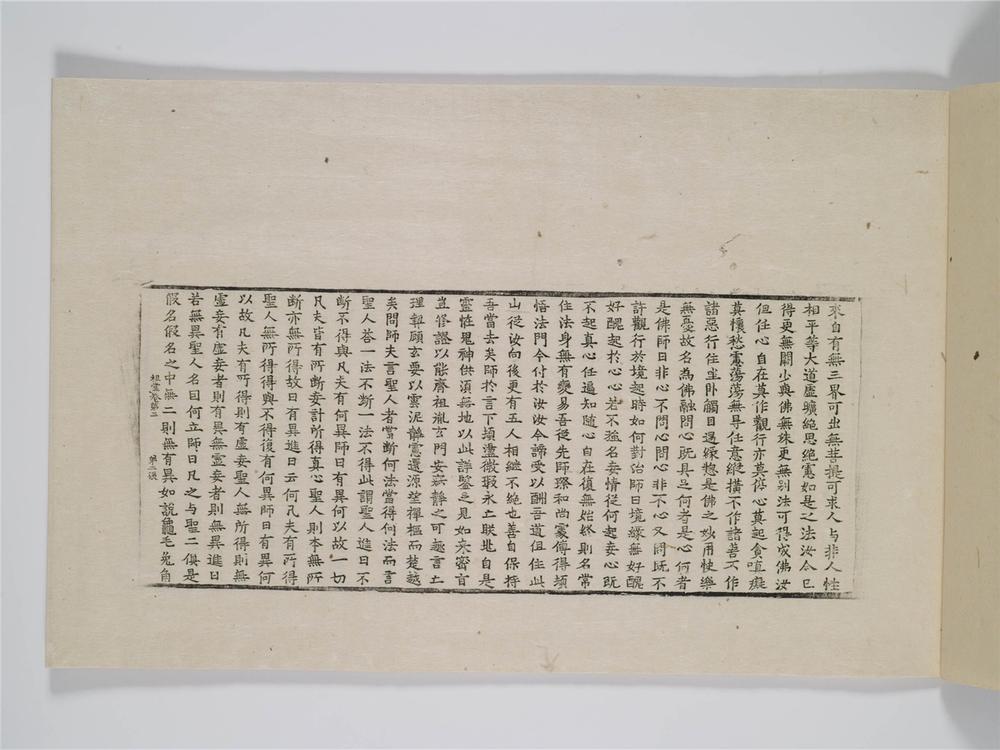 來自有無三界可出無菩提可求人与非人性
相平等大道虛曠絶思絶慮如是之法汝今已
得更無闕少與佛無殊更無別法可得成佛汝
但任心自在莫作觀行亦莫停心莫起貪嗔癡
莫懷愁慮蕩蕩無㝵任意縱橫不作諸善不作
諸惡行住坐卧觸目遇緣惣是佛之妙用快樂
無憂故名為佛融問心既具足何者是心何者
是佛師曰非心不問問心非不心又問既不
許觀行於境起時如何對治師曰境緣無好醜
好醜起於心心若不強名妄情從何起妄心既
不起真心任遍知随心自在復無始終則名常
住法身無有變易吾從先師璨和尚處傳得頓
悟法門今付於汝汝今諦受以酬吾道但住此
山從汝向後更有五人相繼不絶也善自保持
吾當去矣師於言下頓盡微瑕永亡朕兆自是
靈恠鬼神供須無地以此詳鑒之見如来密旨
豈修證以能齊祖胤玄門安寂靜之可趣言亡
理契顧玄要以雲泥靜慮還源望禪樞而楚越
矣問師夫言聖人者當斷何法當得何法而言
聖人荅一法不斷一法不得此謂聖人進曰不
断不得與凡夫有何異師曰有異何以故一切
凡夫皆有所斷妄計所得真心聖人則本無所
断亦無所得故曰有異進曰云何凡夫有所得
聖人無所得得與不得復有何異師曰有異何
以故凡夫有所得則有虛妄聖人無所得則無
虛妄有虛妄者則有異無虛妄者則無異進曰
若無異聖人名因何立師曰凡之与聖二俱是
假名假名之中無二則無有異如說龜毛兔角